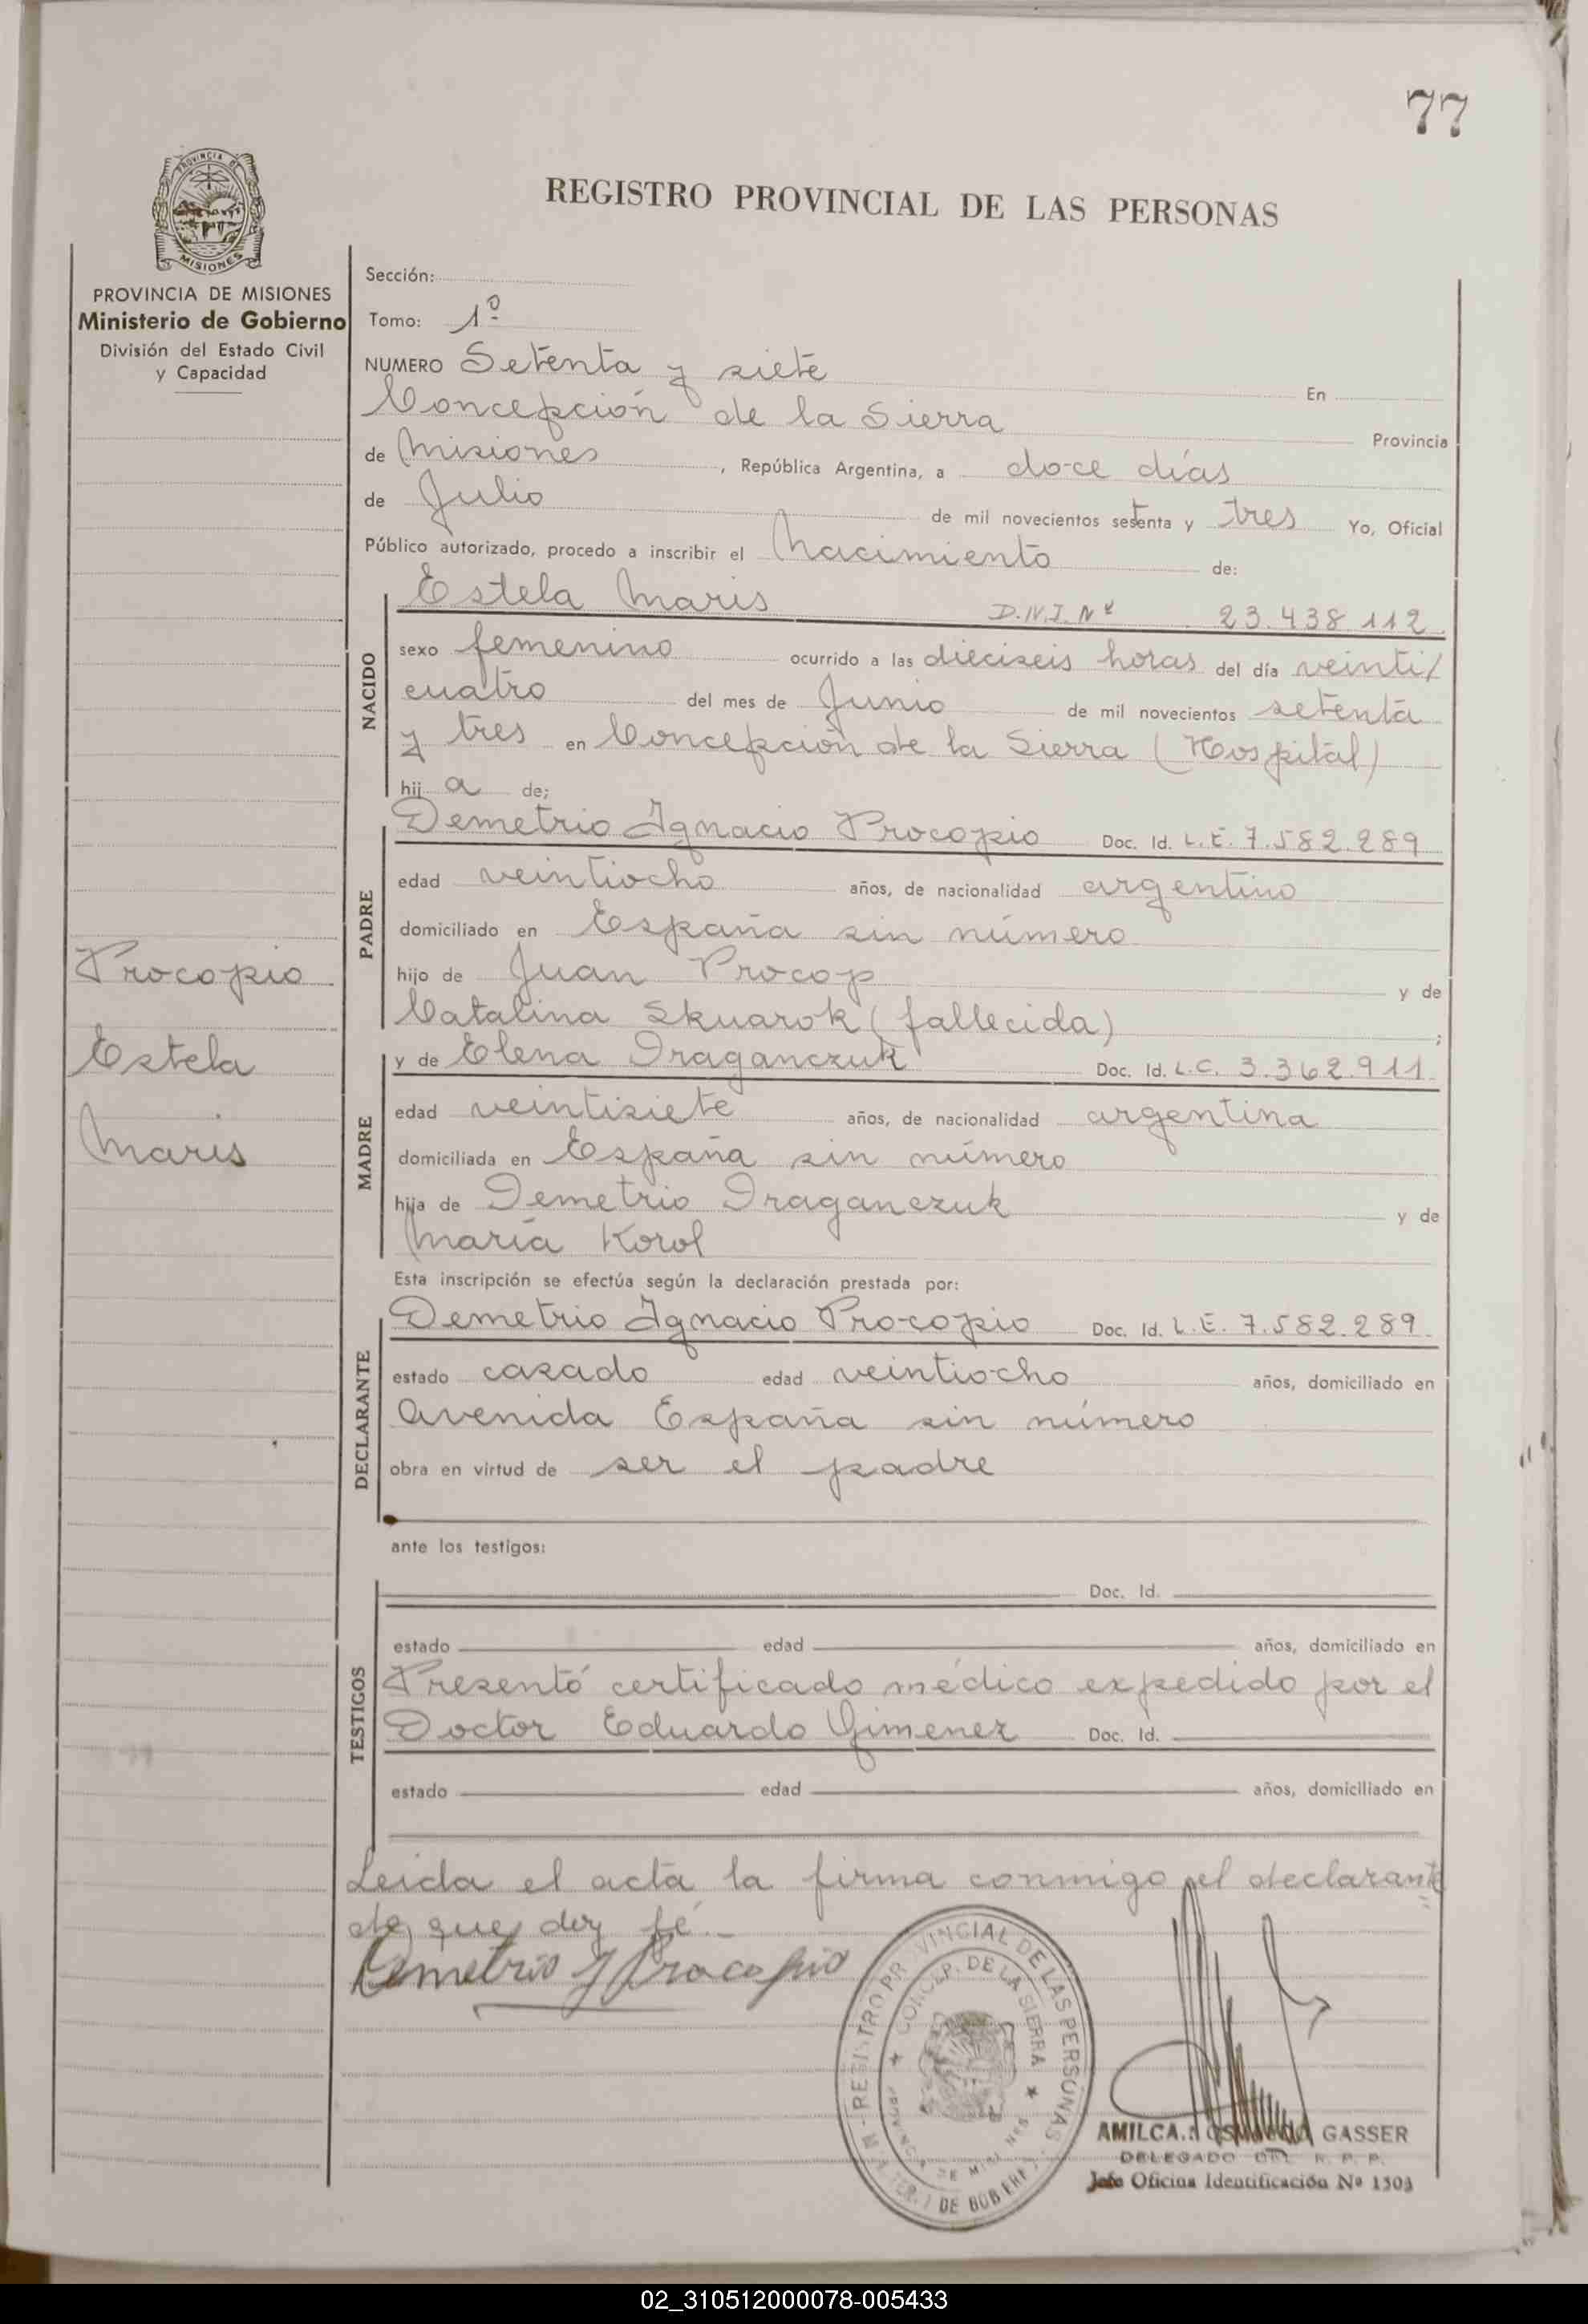 77
PROVINCIA DE
MISIONES
REGISTRO PROVINCIAL DE LAS PERSONAS
PROVINCIA DE MISIONES
Ministerio de Gobierno
División del Estado Civil
y Capacidad
Sección:
Tomo: 1º
NUMERO Setenta y siete En
Concepción de la Sierra Provincia
de Misiones, República Argentina, a doce días
de Julio de mil novecientos setenta y tres Yo, Oficial
Público autorizado, procedo a inscribir el Nacimiento de:
NACIDO
Estela Maris D.N.I. Nº 23.438.112
sexo femenino ocurrido a las dieciseis horas del día veinti/
cuatro del mes de Junio de mil novecientos setenta
y tres en Concepción de la Sierra (Hospital)
hij a de;
PADRE
Demetrio Ignacio Procopio Doc. Id. L.E. 7.582.289
edad veintiocho años, de nacionalidad argentino
domiciliado en España sin número
hijo de Juan Procop y de
Catalina Skuarok (fallecida) ;
Procopio
Estela
Maris
MADRE
y de Elena Draganczuk Doc. Id. L.C. 3.362.911
edad veintisiete años, de nacionalidad argentina
domiciliada en España sin número
hija de Demetrio Draganczuk y de
María Korol
Esta inscripción se efectúa según la declaración prestada por:
DECLARANTE
Demetrio Ignacio Procopio Doc. Id. L.E. 7.582.289
estado casado edad veintiocho años, domiciliado en
Avenida España sin número
obra en virtud de ser el padre
ante los testigos:
TESTIGOS
Doc. Id.
estado edad años, domiciliado en
Presentó certificado médico expedido por el
Doctor Eduardo Gimenez Doc. Id.
estado edad años, domiciliado en
Leida el acta la firma conmigo el declarante
de que doy fé.
Demetrio I Procopio
REGISTRO PROVINCIAL DE LAS PERSONAS
CONCEP. DE LA SIERRA
GASSER
DELEGADO DEL R. P. P.
Jefe Oficina Identificación Nº 1303
02_310512000078-005433